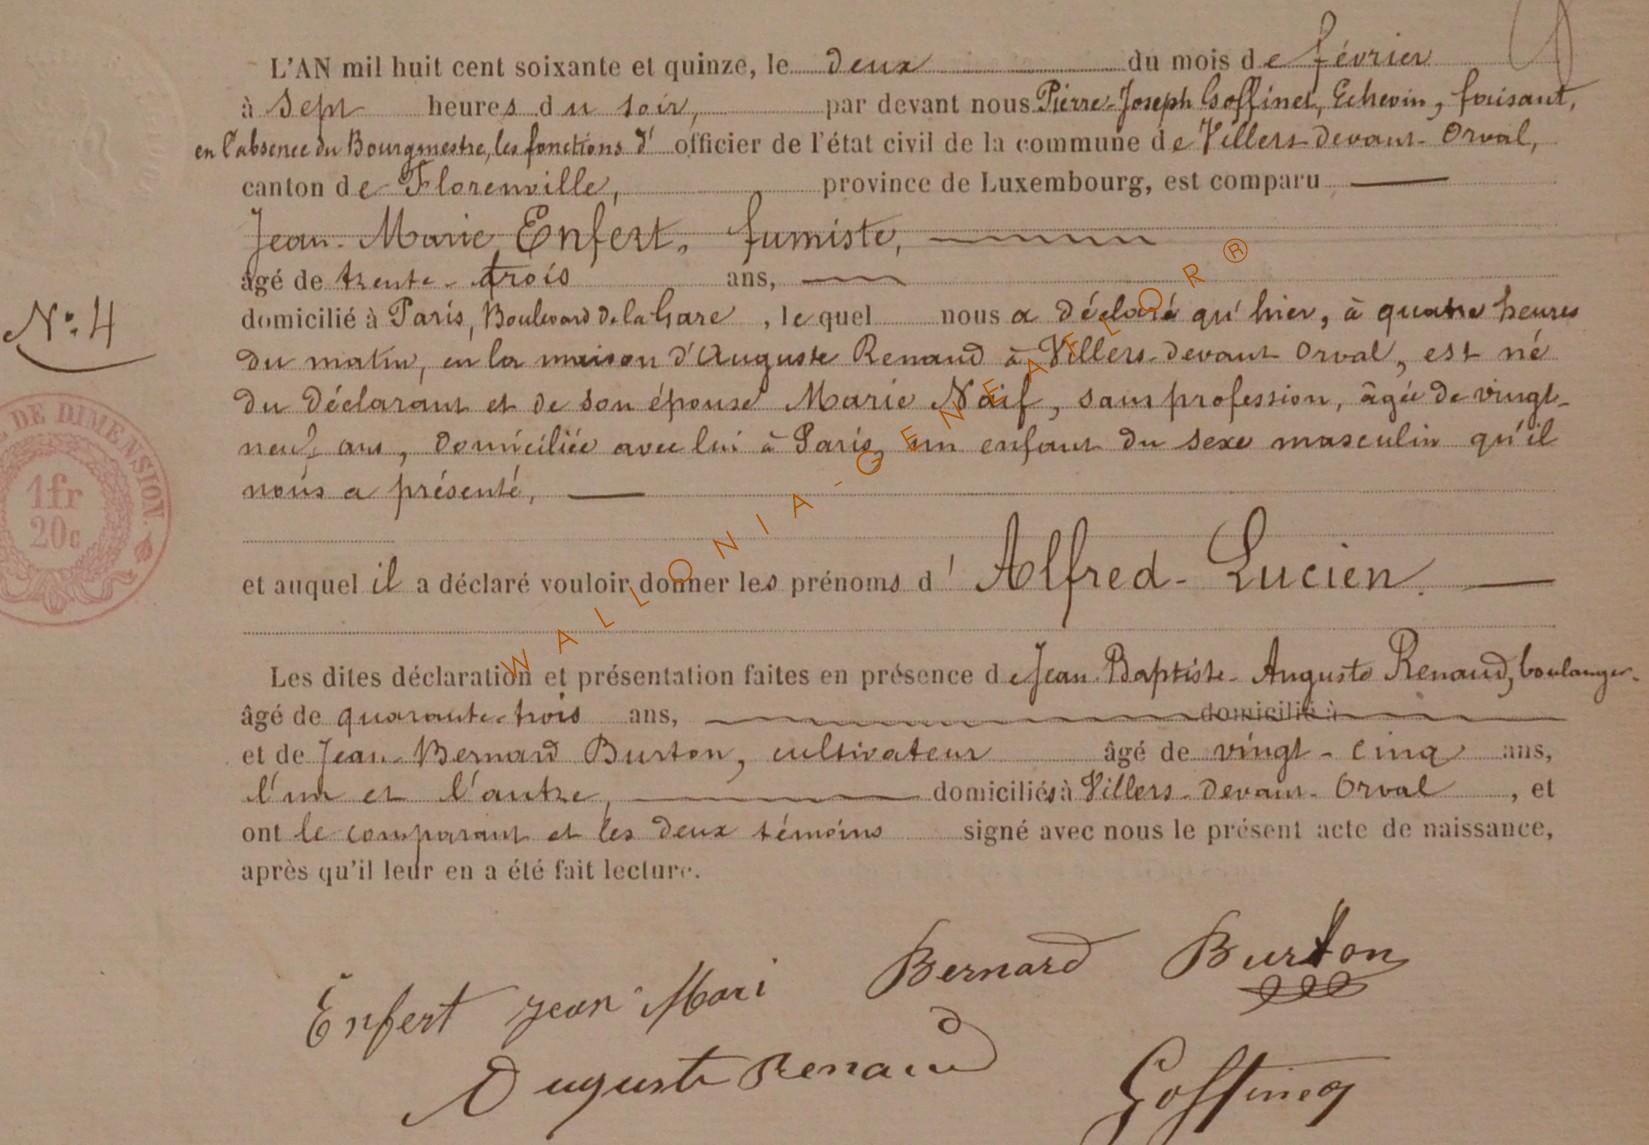 L'AN mil huit cent soixante et quinze, le deux du mois de février
à sept heures du soir, par devant nous Pierre-Joseph Goffinet, Echevin, faisant,
en l'absence du Bourgmestre, les fonctions d' officier de l'état civil de la commune de Villers devant Orval,
canton de Florenville, province de Luxembourg, est comparu
Jean-Marie Enfert, fumiste,
âgé de trente-trois ans,
domicilié à Paris, Boulevard de la Gare, lequel nous a déclaré qu'hier, à quatre heures
N° 4
du matin, en la maison d'Auguste Renaud à Villers-devant Orval, est né
du déclarant et de son épouse Marie Naif, sans profession, âgée de vingt-
neuf ans, domiciliée avec lui à Paris, un enfant du sexe masculin qu'il
nous a présenté,
DE DIMENSION.
1fr
20c
et auquel il a déclaré vouloir donner les prénoms d'Alfred-Lucien.
Les dites déclaration et présentation faites en présence de Jean Baptiste-Auguste Renaud, boulanger
âgé de quarante-trois ans, domicilié à
et de Jean-Bernard Burton, cultivateur âgé de vingt-cinq ans,
l'un et l'autre, domiciliés à Villers-devant-Orval, et
ont le comparant et les deux témoins signé avec nous le présent acte de naissance,
après qu'il leur en a été fait lecture.
Enfert Jean Mari Bernard Burton
Auguste Renaud Goffinet
WALLONIA-GENEAFLOR®